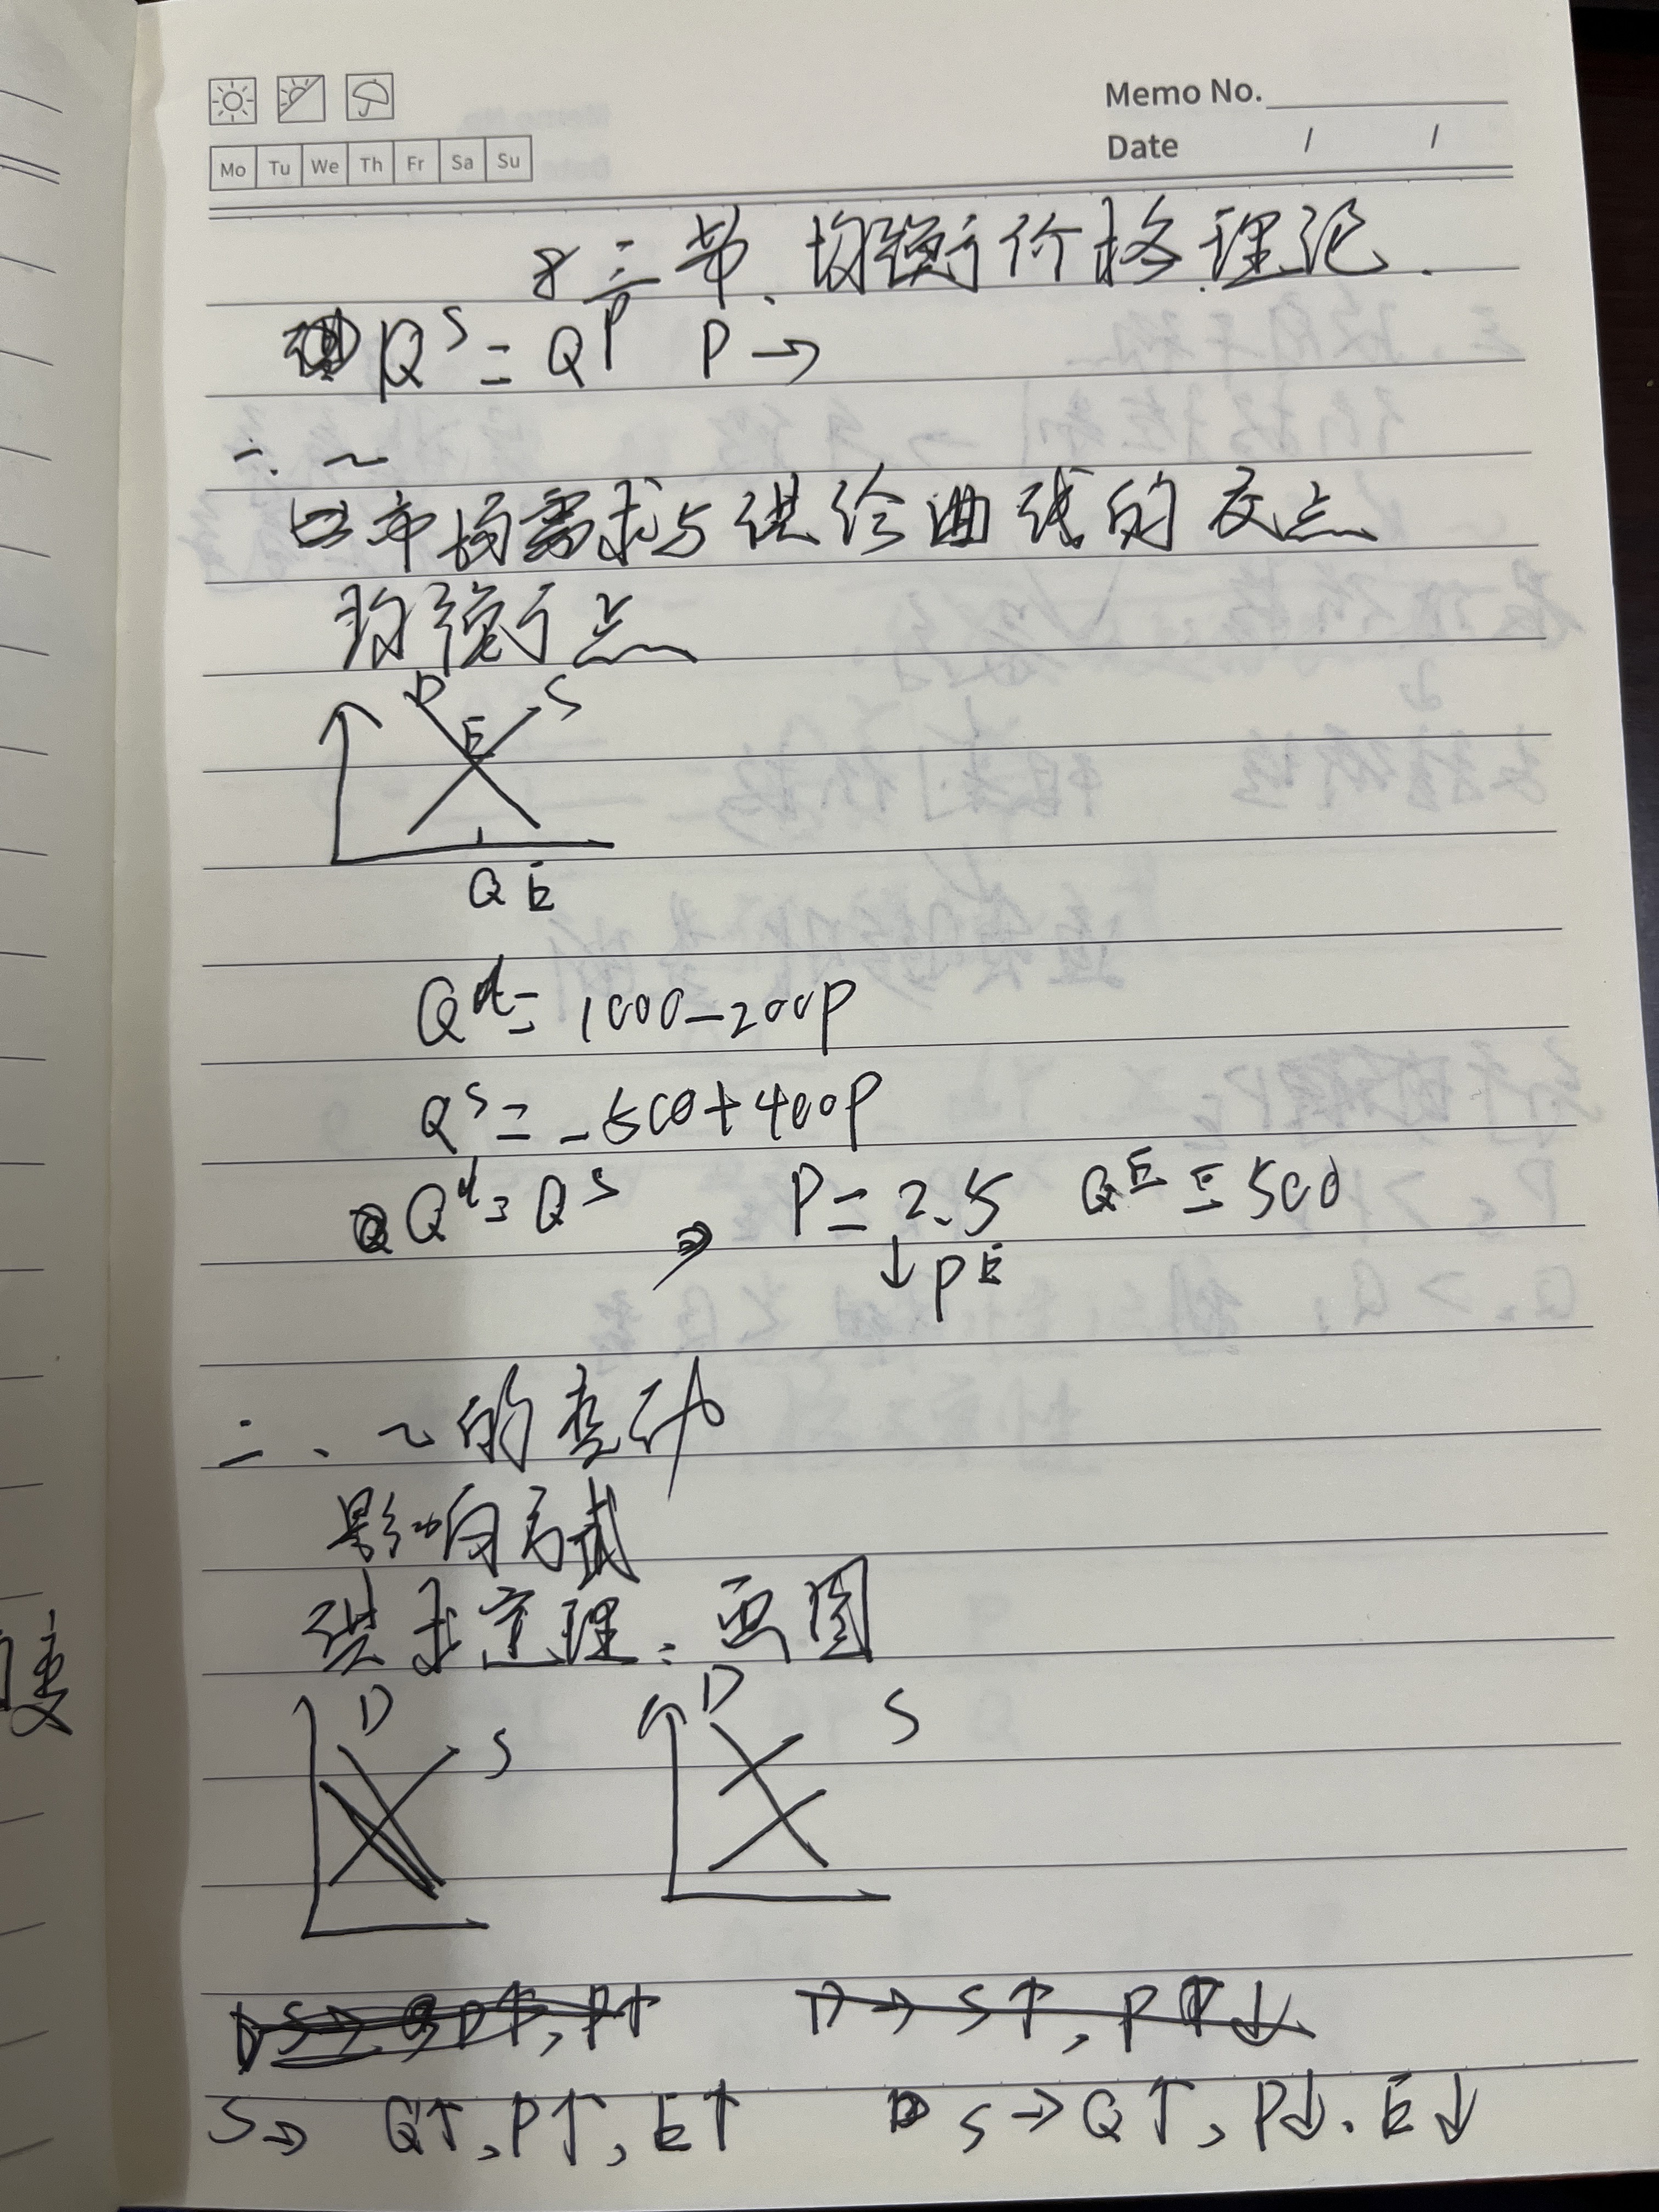 Memo No.
Mo Tu We Th Fr Sa Su
Date / /
第三节、均衡价格理论.
Q^S = Q^P P →
一. ~
市场需求与供给曲线的交点
均衡点
D S
E
Q E
Q^d = 1000-200P
Q^S = -500+400P
Q^d = Q^S ⇒ P = 2.5 Q^E = 500
↓ P^E
二、~的变动
影响方式
供求定理:画图
D S D S
D → S↑, P↑↓
S→ Q↑, P↑, E↑ S → Q↑, P↓. E↓